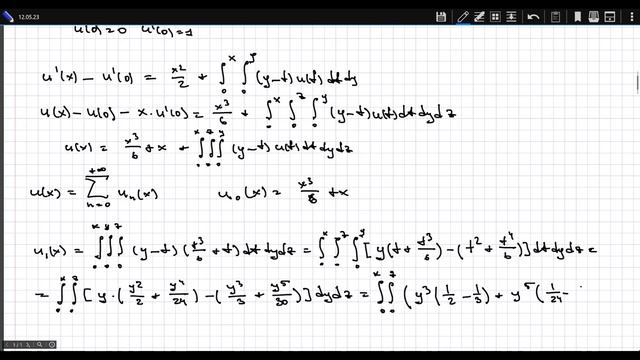 12.05.23
u(0)=0 u'(0)=1
u'(x) - u'(0) = x²/2 + ∫₀ˣ ∫₀ʸ (y-t) u(t) dt dy
u(x) - u(0) - x·u'(0) = x³/6 + ∫₀ˣ ∫₀ᶻ ∫₀ʸ (y-t) u(t) dt dy dz
u(x) = x³/6 + x + ∫₀ˣ ∫₀ᶻ ∫₀ʸ (y-t) u(t) dt dy dz
u(x) = ∑_{n=0}^{+∞} uₙ(x) u₀(x) = x³/6 + x
u₁(x) = ∫₀ˣ ∫₀ʸ ∫₀ᶻ (y-t) (t³/6 + t) dt dy dz = ∫₀ˣ ∫₀ᶻ ∫₀ʸ [y(t + t³/6) - (t² + t⁴/6)] dt dy dz =
= ∫₀ˣ ∫₀ᶻ [y·(y²/2 + y⁴/24) - (y³/3 + y⁵/30)] dy dz = ∫₀ˣ ∫₀ᶻ (y³(1/2 - 1/3) + y⁵(1/24 -